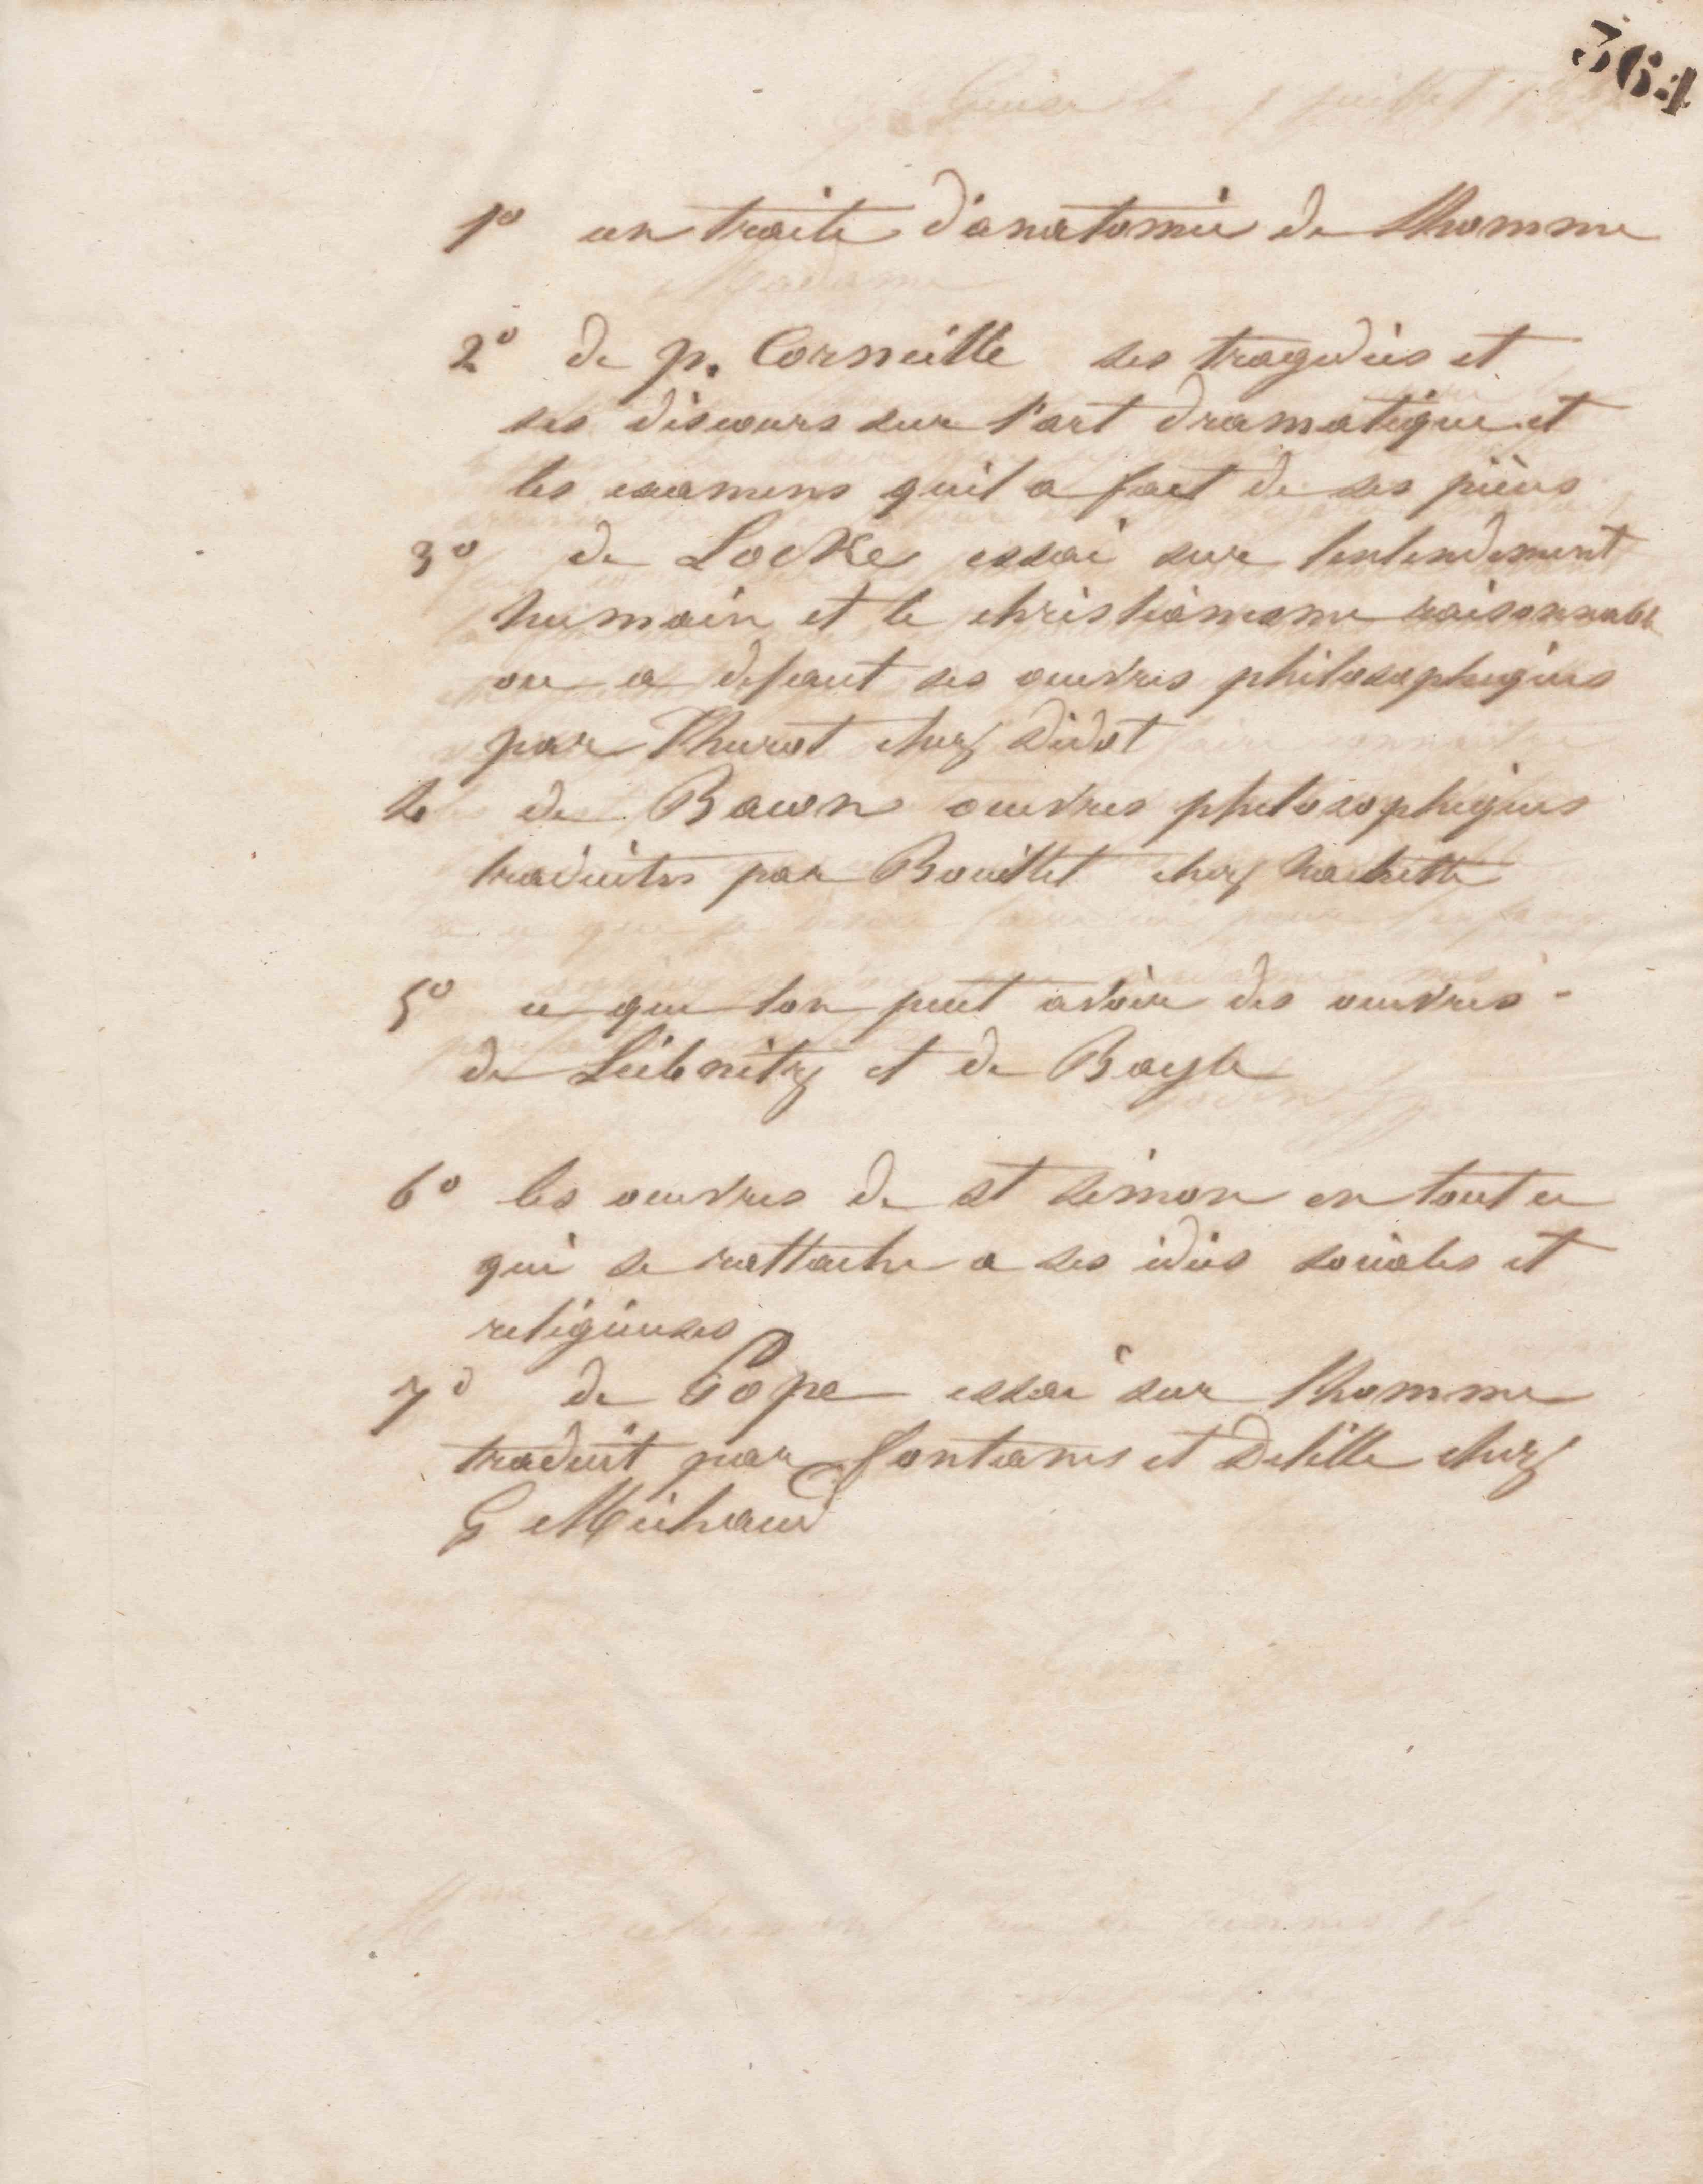 364
1º un traite d'anatomie de lhomme
2º de p. Corneille ses tragedies et
ses discours sur l'art dramatique et
les examens quil a fait de ses pièces
3º de Locke essai sur lentendement
humain et le christianisme raisonnable
ou a defaut ses œuvres philosophiques
par Thurot chez Didot
4 de Bacon œuvres philosophiques
traduites par Bouillet chez hachette
5º ce que lon peut avoir des œuvres
de Leibnitz et de Bayle
6º les œuvres de st simon en tout ce
qui se rattache a ses idées sociales et
religieuses
7º de Pope essai sur lhomme
traduit par fontanes et Delille chez
G Michaud